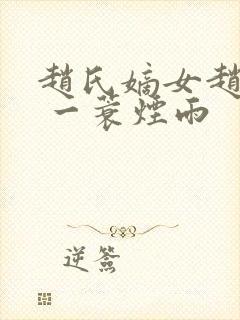 趙氏嫡女趙
一蓑煙雨
逆簽